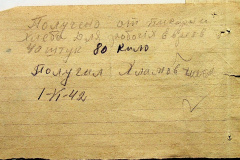 Получено от
хлеба для рабочих
40 штук 80 кило
Получил Хламов
1-VI-42